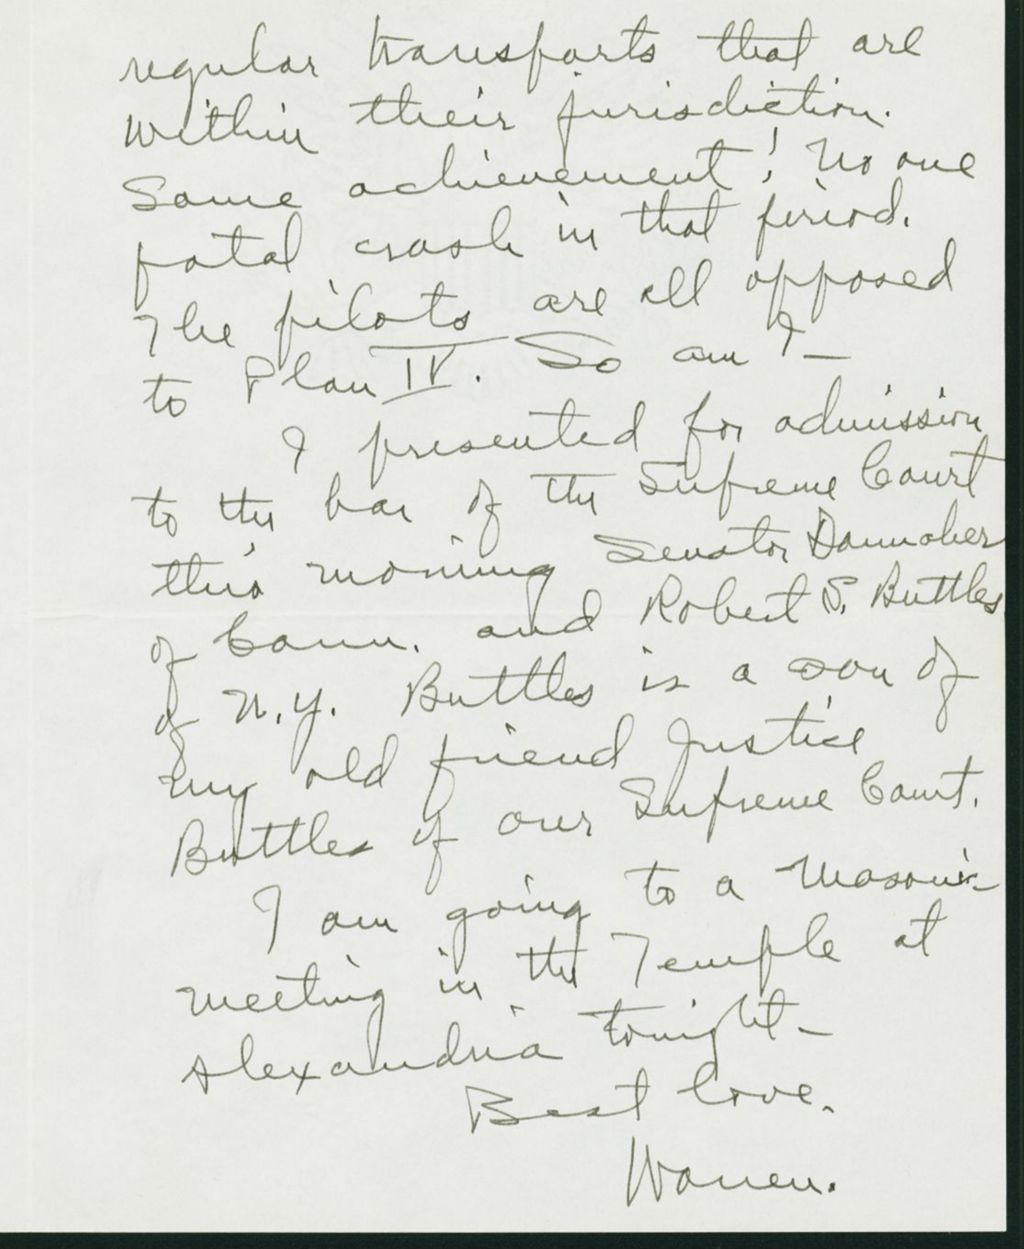 regular transports that are
within their jurisdiction.
Some achievement! No one
fatal crash in that period.
The pilots are all opposed
to Plan IV. So am I—
I presented for admission
to the bar of the Supreme Court
this morning Senator Dannaher
of Conn. and Robert S. Buttles
of N.Y. Buttles is a son of
my old friend Justice
Buttles of our Supreme Court.
I am going to a Masonic
meeting in the Temple at
Alexandria tonight—
Best love.
Warren.